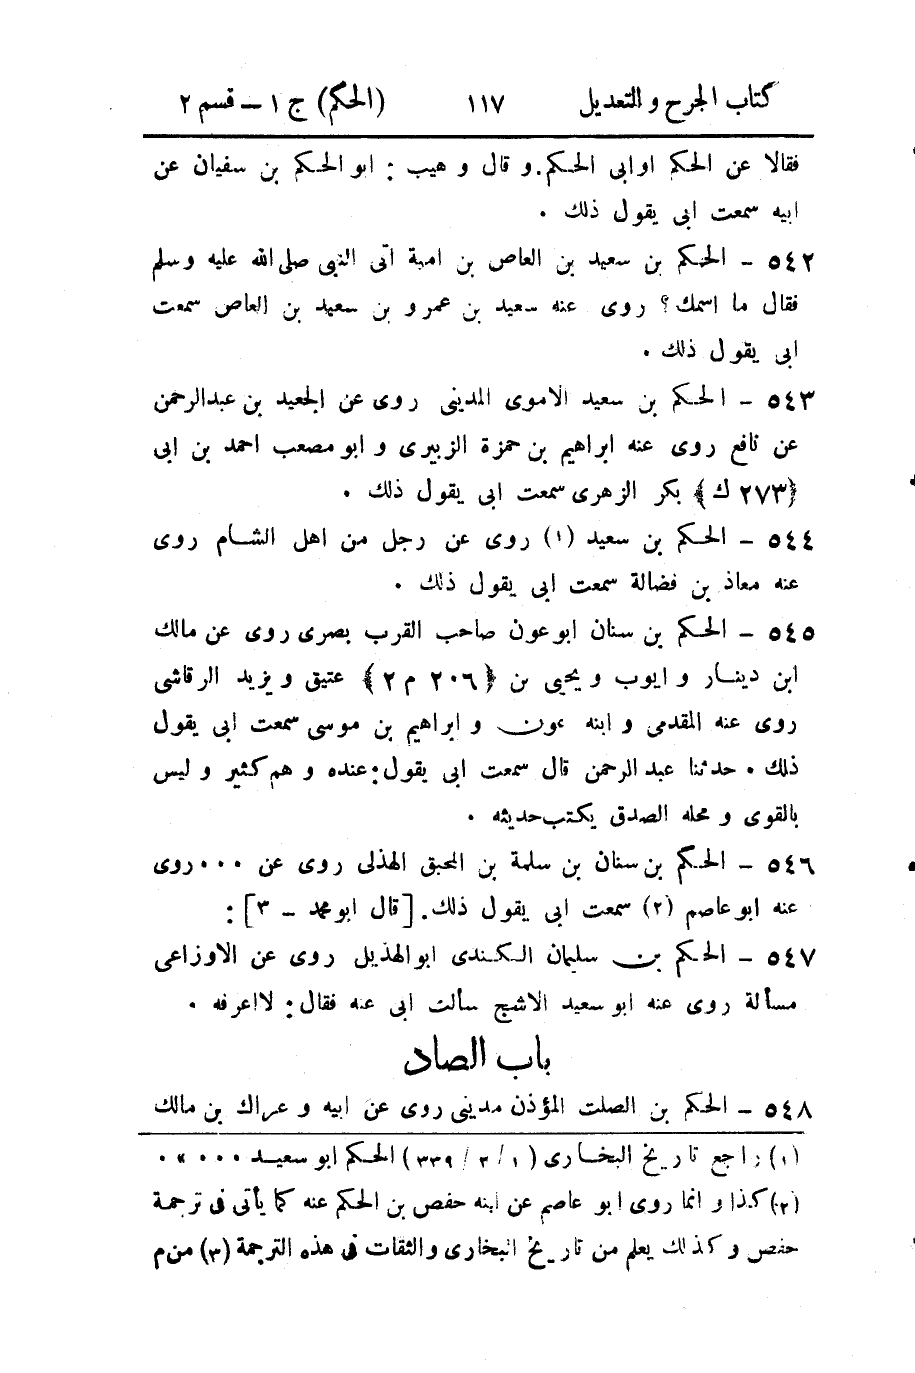 كتاب الجرح و التعديل ١١٧ (الحكم) ج ١ – قسم ٢
فقالا عن الحكم او ابى الحكم. و قال و هيب : ابو الحكم بن سفيان عن
ابيه سمعت ابى يقول ذلك .
٥٤٢ – الحكم بن سعيد بن العاص بن امية اتى النبى صلى الله عليه وسلم
فقال ما اسمك؟ روى عنه سعيد بن عمرو بن سعيد بن العاص سمعت
ابى يقول ذلك .
٥٤٣ – الحكم بن سعيد الاموى المدينى روى عن الجعيد بن عبدالرحمن
عن نافع روى عنه ابراهيم بن حمزة الزبيرى و ابو مصعب احمد بن ابى
﴿٢٧٣ ك﴾ بكر الزهرى سمعت ابى يقول ذلك .
٥٤٤ – الحكم بن سعيد (١) روى عن رجل من اهل الشام روى
عنه معاذ بن فضالة سمعت ابى يقول ذلك .
٥٤٥ – الحكم بن سنان ابو عون صاحب القرب بصرى روى عن مالك
ابن دينار و ايوب و يحيى بن ﴿٢٠٦ م ٢﴾ عتيق و يزيد الرقاشى
روى عنه المقدمى و ابنه عون و ابراهيم بن موسى سمعت ابى يقول
ذلك . حدثنا عبد الرحمن قال سمعت ابى يقول: عنده و هم كثير و ليس
بالقوى و محله الصدق يكتب حديثه .
٥٤٦ – الحكم بن سنان بن سلمة بن المحبق الهذلى روى عن ٠٠٠ روى
عنه ابو عاصم (٢) سمعت ابى يقول ذلك. [قال ابو محمد – ٣] :
٥٤٧ – الحكم بن سليمان الكندى ابو الهذيل روى عن الاوزاعى
مسألة روى عنه ابو سعيد الاشج سألت ابى عنه فقال: لا اعرفه .
باب الصاد
٥٤٨ – الحكم بن الصلت المؤذن مدينى روى عن ابيه و عراك بن مالك
(١) راجع تاريخ البخارى (١/ ٢/ ٣٣٩) الحكم ابو سعيد ٠٠٠ » .
(٢) كذا و انما روى ابو عاصم عن ابنه حفص بن الحكم عنه كما يأتى فى ترجمة
حفص و كذلك يعلم من تاريخ البخارى والثقات فى هذه الترجمة (٣) من م